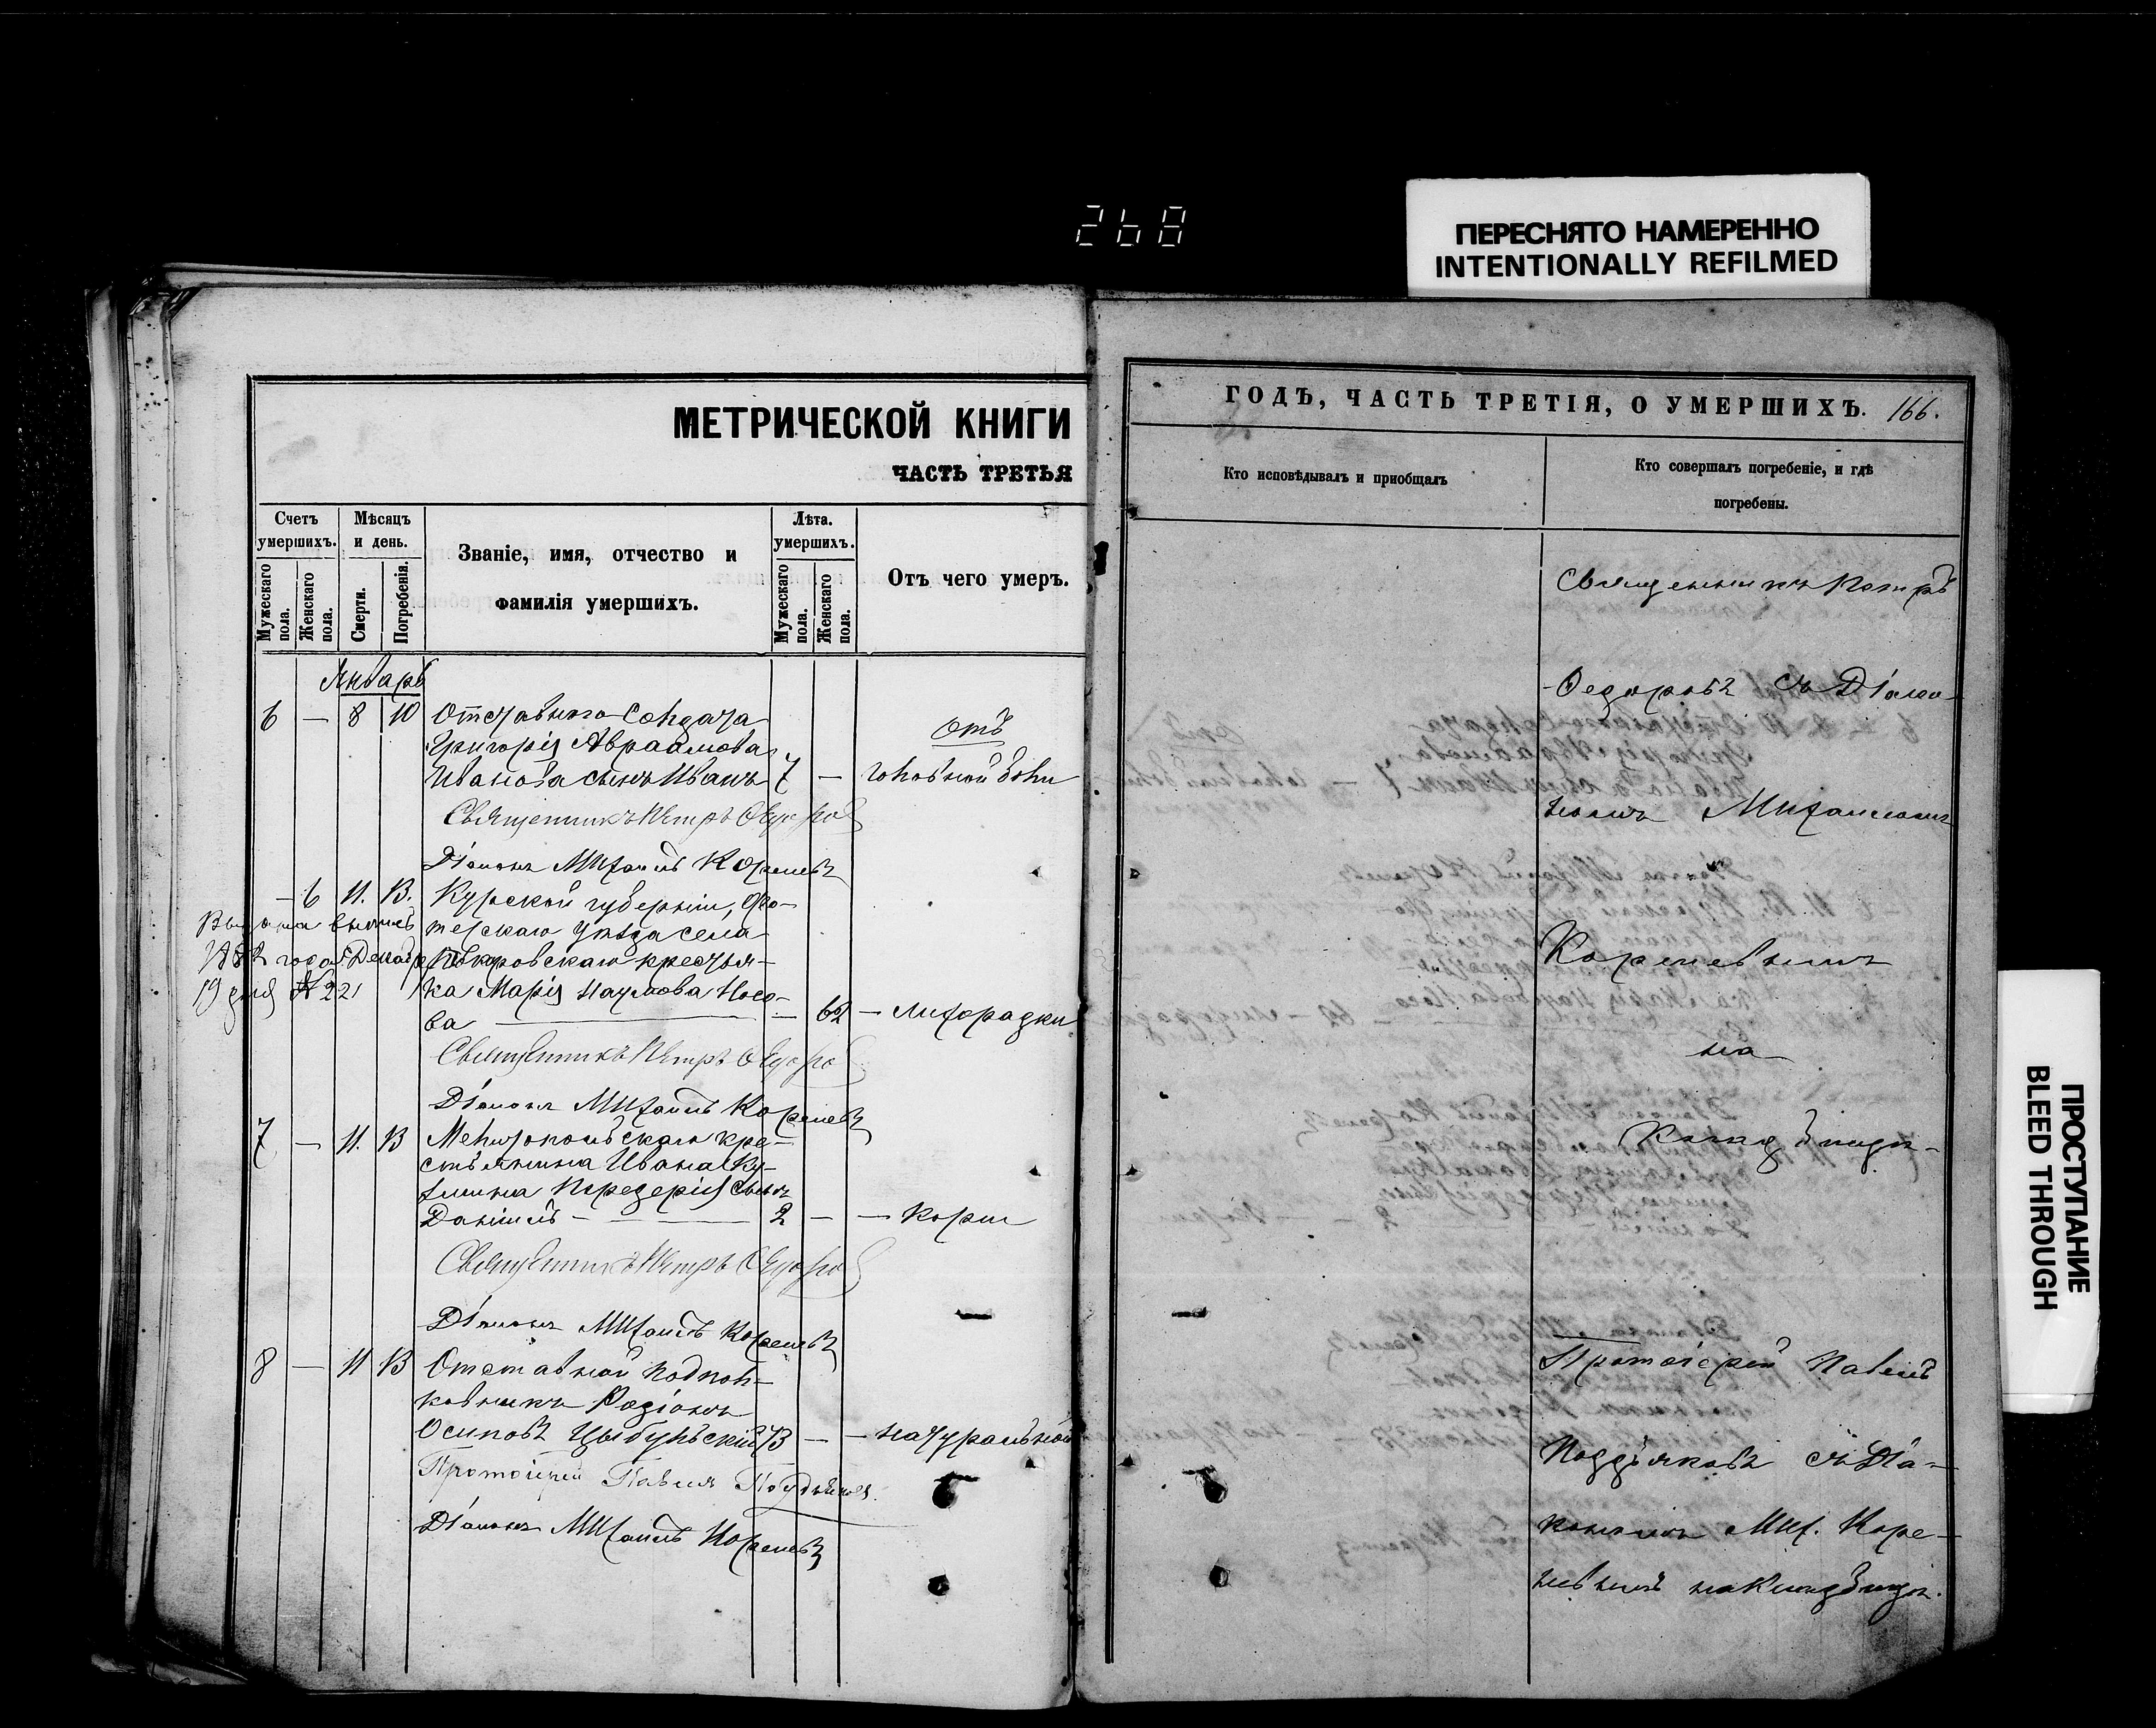 268
ПЕРЕСНЯТО НАМЕРЕННО
INTENTIONALLY REFILMED
МЕТРИЧЕСКОЙ КНИГИ
ЧАСТЬ ТРЕТЬЯ
Счетъ умершихъ.
Мѣсяцъ и день.
Званіе, имя, отчество и
фамилія умершихъ.
Лѣта. умершихъ.
Отъ чего умеръ.
Мужескаго пола.
Женскаго пола.
Смерти.
Погребенія.
Мужескаго пола.
Женскаго пола.
Январь
6 — 8 10 Отставнаго Солдата
Григорія Авраамова
Иванова сынъ Иванъ 7 — отъ головной боли
Священникъ Петръ Ѳедоровъ
Діаконъ Михаилъ Кореневъ
— 6 11. 13. Курской губерніи, Фа-
тежскаго уѣзда села
Покровскаго крестьян-
ка Марія Наумова Носо-
ва — 62 — лихорадки
Выдана выпись
19 дня № 221
Священникъ Петръ Ѳедоровъ
Діаконъ Михаилъ Кореневъ
7 — 11. 13 Мелитопольскаго кре-
стьянина Ивана
сынъ
Даніилъ — 2 — — кори
Священникъ Петръ Ѳедоровъ
Діаконъ Михаилъ Кореневъ
8 — 11 13 Отставной подпол-
ковникъ Родіонъ
Осиповъ Цыбульскій 73 — — натуральной
Протоіерей Павелъ Поддьяковъ.
Діаконъ Михаилъ Кореневъ
ГОДЪ, ЧАСТЬ ТРЕТІЯ, О УМЕРШИХЪ. 166.
Кто исповѣдывалъ и пріобщалъ
Кто совершалъ погребеніе, и гдѣ
погребены.
Священникъ Петръ
Ѳедоровъ съ Діако-
номъ Михаиломъ
Кореневымъ
на
Кладбищѣ
Протоіерей Павелъ
Поддьяковъ съ Діа-
кономъ Мих. Коре-
невымъ на Кладбищѣ.
ПРОСТУПАНИЕ
BLEED THROUGH